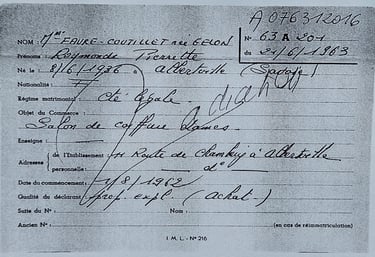 A 076312016
N° 63 A 201
du 21/6/1963
NOM : Mme FAURE-COUTILLET née GELON
Prénoms Raymonde Pierrette
Né le : 8/6/1936 à Albertville (Savoie)
Nationalité :
Régime matrimonial : Cté légale.
Objet du Commerce :
Salon de coiffure Dames.
Enseigne :
Adresses de l'Etablissement : 11 Route de Chambéry à Albertville
personnelle : d°
Date du commencement : 1/8/1962
Qualité du déclarant : prop. expl. (achat.)
Suite du N° : Nom :
Ancien N° : (en cas de réimmatriculation)
I M L. - N° 216